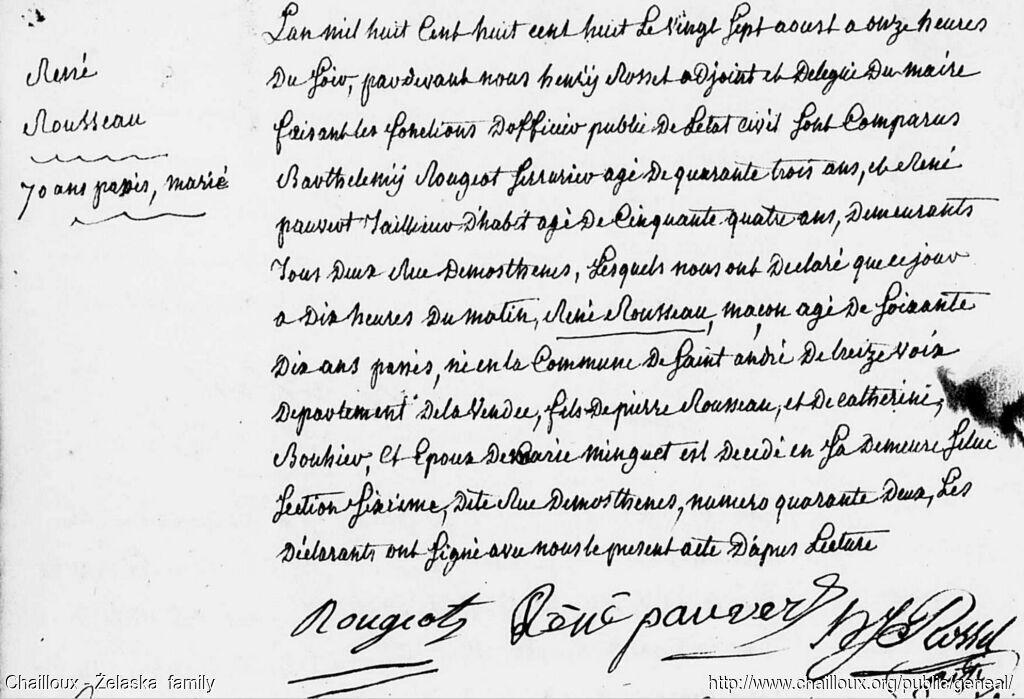 René
Rousseau
70 ans passés, marié
L'an mil huit Cent huit cent huit Le vingt Sept aoust a onze heures
Du Soir, pardevant nous henrÿ Rosset adjoint et Delegué Du maire
faisant les fonctions D'officier public De L'etat civil Sont Comparus
Barthelemÿ Rougeot Serrurier agé De quarante trois ans, et René
pauvert Tailleur D'habit agé De Cinquante quatre ans, Demeurants
Tous Deux Rue Demosthenes, Lesquels nous ont Declaré que ce jour
a Dix heures Du matin, René Rousseau, maçon agé De Soixante
Dix ans passés, né en la Commune De Saint andré De treize voix
Departement De la Vendée, fils De pierre Rousseau, et De catherine,
Bouhier, et Epoux De marie minguet est Decedé en Sa Demeure Scluc
Section Sixième, Dite Rue Demosthenes, numero quarante Deux, Les
Déclarants ont Signé avec nous le present acte D'après Lecture
Rougeot René pauvert Rosset
Chailloux - Żelaska family
http://www.chailloux.org/public/geneal/